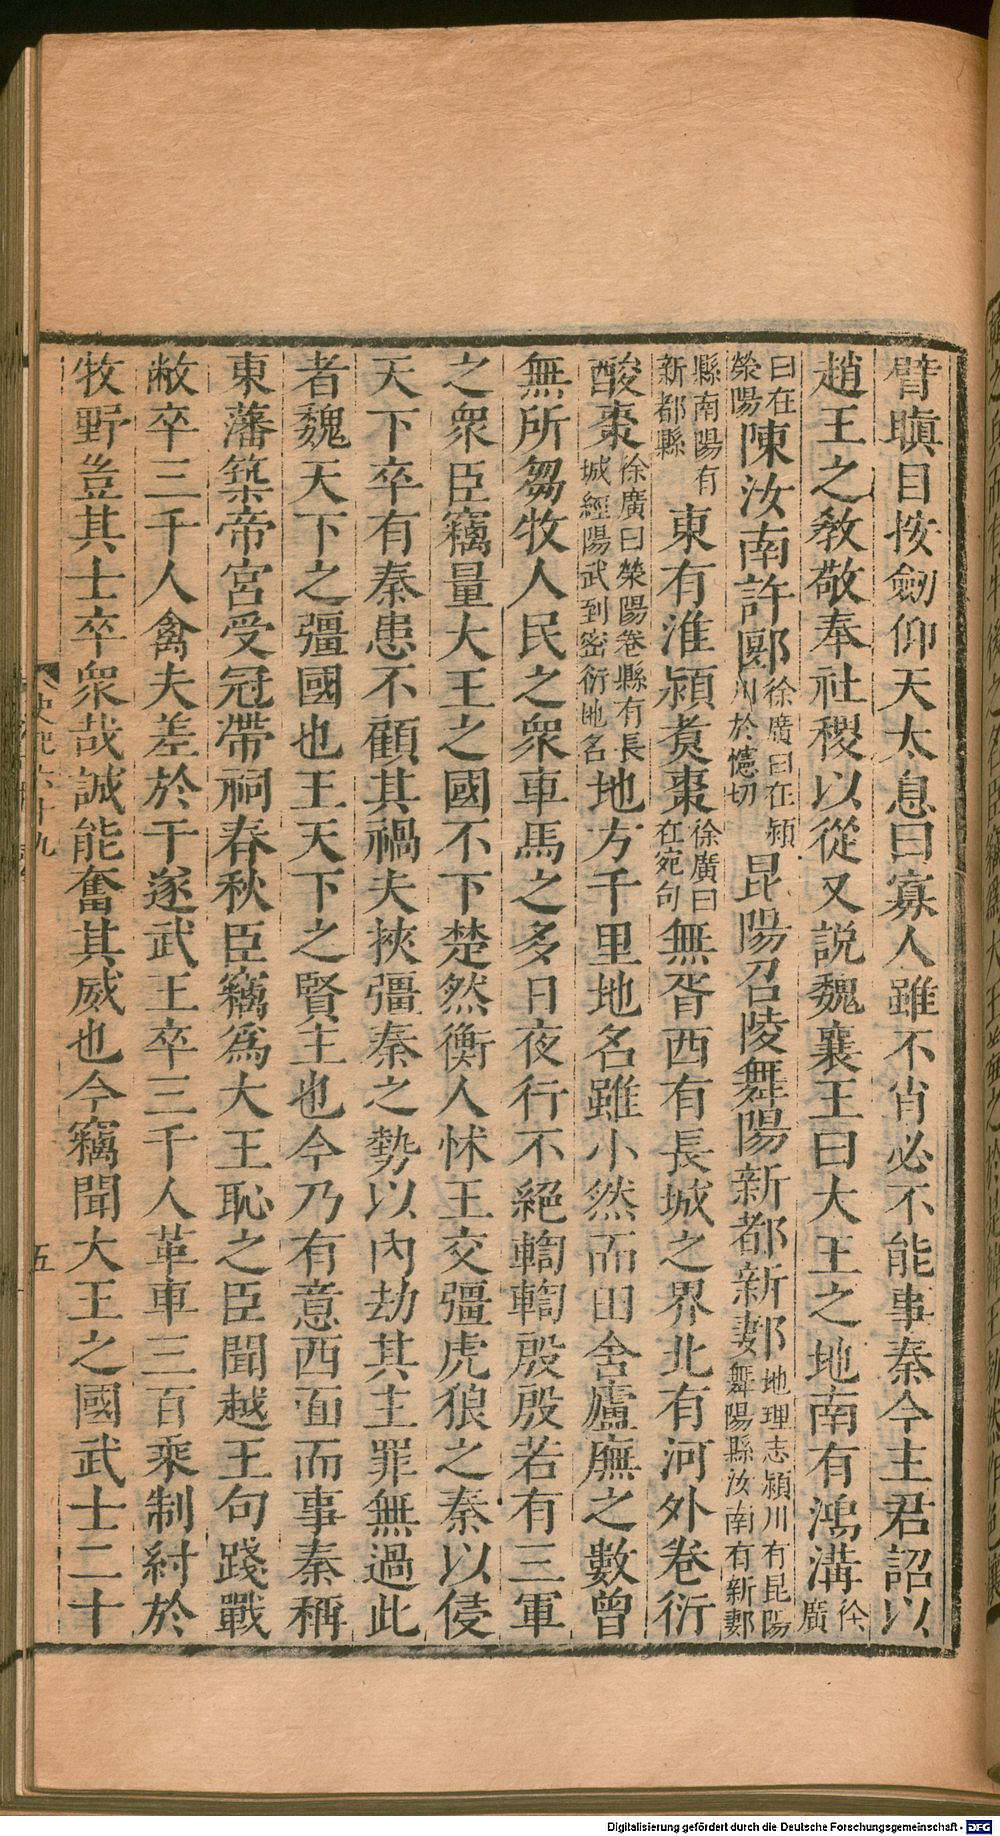 臂瞋目按劒仰天太息曰寡人雖不肖必不能事秦今主君詔以
趙王之敎敬奉社稷以從又說魏襄王曰大王之地南有鴻溝徐廣
曰在滎陽陳汝南許郾徐廣曰在潁川於幰切昆陽召陵舞陽新都新郪地理志潁川有昆陽舞陽縣汝南有新郪
縣南陽有新都縣東有淮潁煑棗徐廣曰在宛句無胥西有長城之界北有河外卷衍
酸棗徐廣曰滎陽卷縣有長城經陽武到密衍地名地方千里地名雖小然而田舍廬廡之數曾
無所芻牧人民之衆車馬之多日夜行不絕輷輷殷殷若有三軍
之衆臣竊量大王之國不下楚然衡人怵王交彊虎狼之秦以侵
天下卒有秦患不顧其禍夫挾彊秦之勢以內劫其主罪無過此
者魏天下之彊國也王天下之賢主也今乃有意西面而事秦稱
東藩築帝宮受冠帶祠春秋臣竊爲大王恥之臣聞越王句踐戰
敝卒三千人禽夫差於干遂武王卒三千人革車三百乘制紂於
牧野豈其士卒衆哉誠能奮其威也今竊聞大王之國武士二十
史記六十九
五
Digitalisierung gefördert durch die Deutsche Forschungsgemeinschaft - DFG